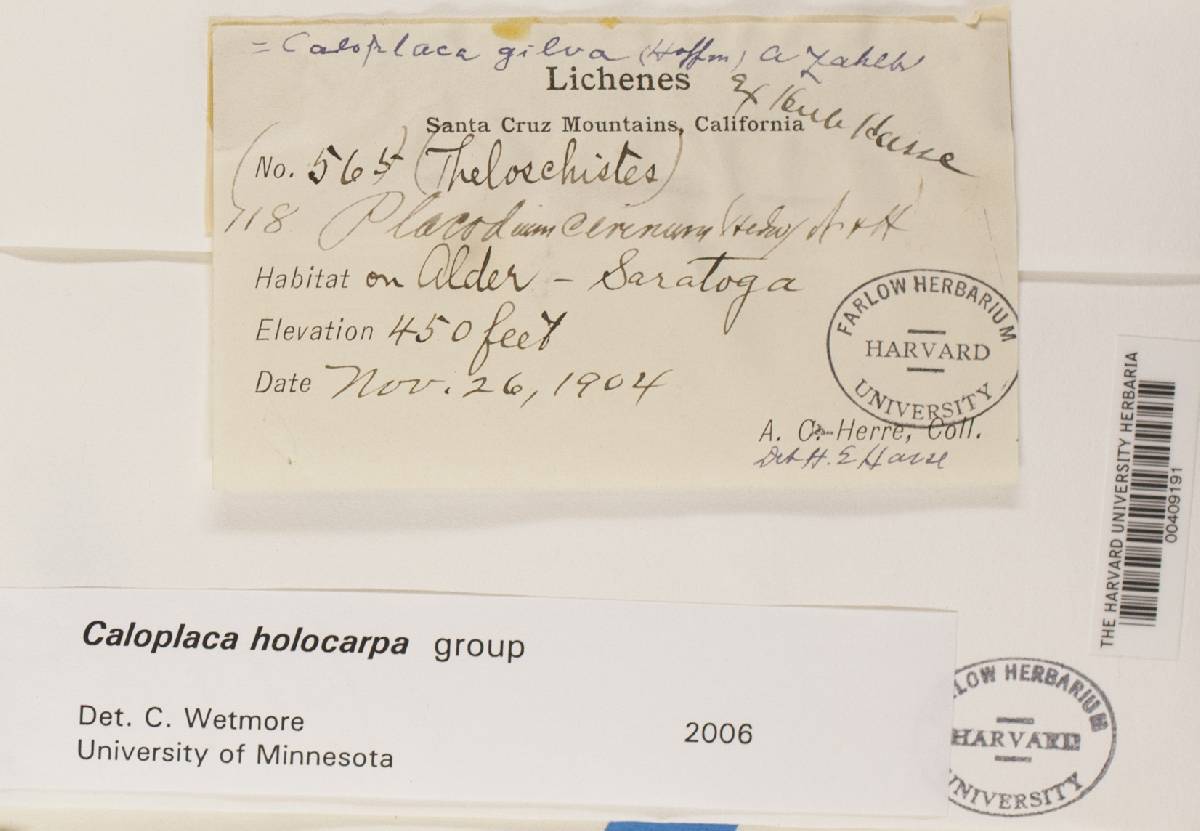 = Caloplaca gilva (Hoffm) A Zahlb
Lichenes
Santa Cruz Mountains, California
Hasse
(No. 565) (Theloschistes)
118 Placodium cerinum (Hedw)
Habitat on Alder - Saratoga
Elevation 450 feet
Date Nov. 26, 1904
FARLOW HERBARIUM
HARVARD
UNIVERSITY
A. C. Herre, Coll.
Det H. E Hasse
THE HARVARD UNIVERSITY HERBARIA
00409191
Caloplaca holocarpa group
Det. C. Wetmore 2006
University of Minnesota
LOW HERBARIUM
HARVARD
UNIVERSITY